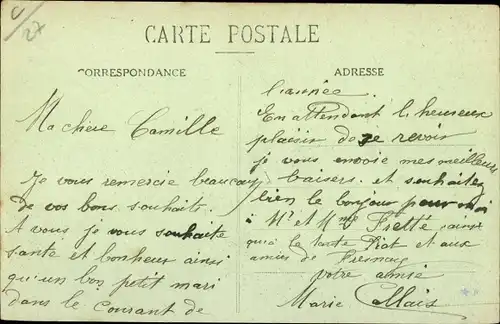 CARTE POSTALE
CORRESPONDANCE
Ma chère Camille
Je vous remercie beaucoup
de vos bons souhaits.
A vous je vous souhaite
santé et bonheur ainsi
qu'un bon petit mari
dans le courant de
ADRESSE
l'année.
En attendant l'heureux
plaisir de se revoir
je vous envoie mes meilleurs
baisers. et souhaitez
bien le bonjour pour moi
à Mr et Mme Fretté, ainsi
qu'à la tante Piat et aux
amies de Fresnay
votre amie
Marie Callais